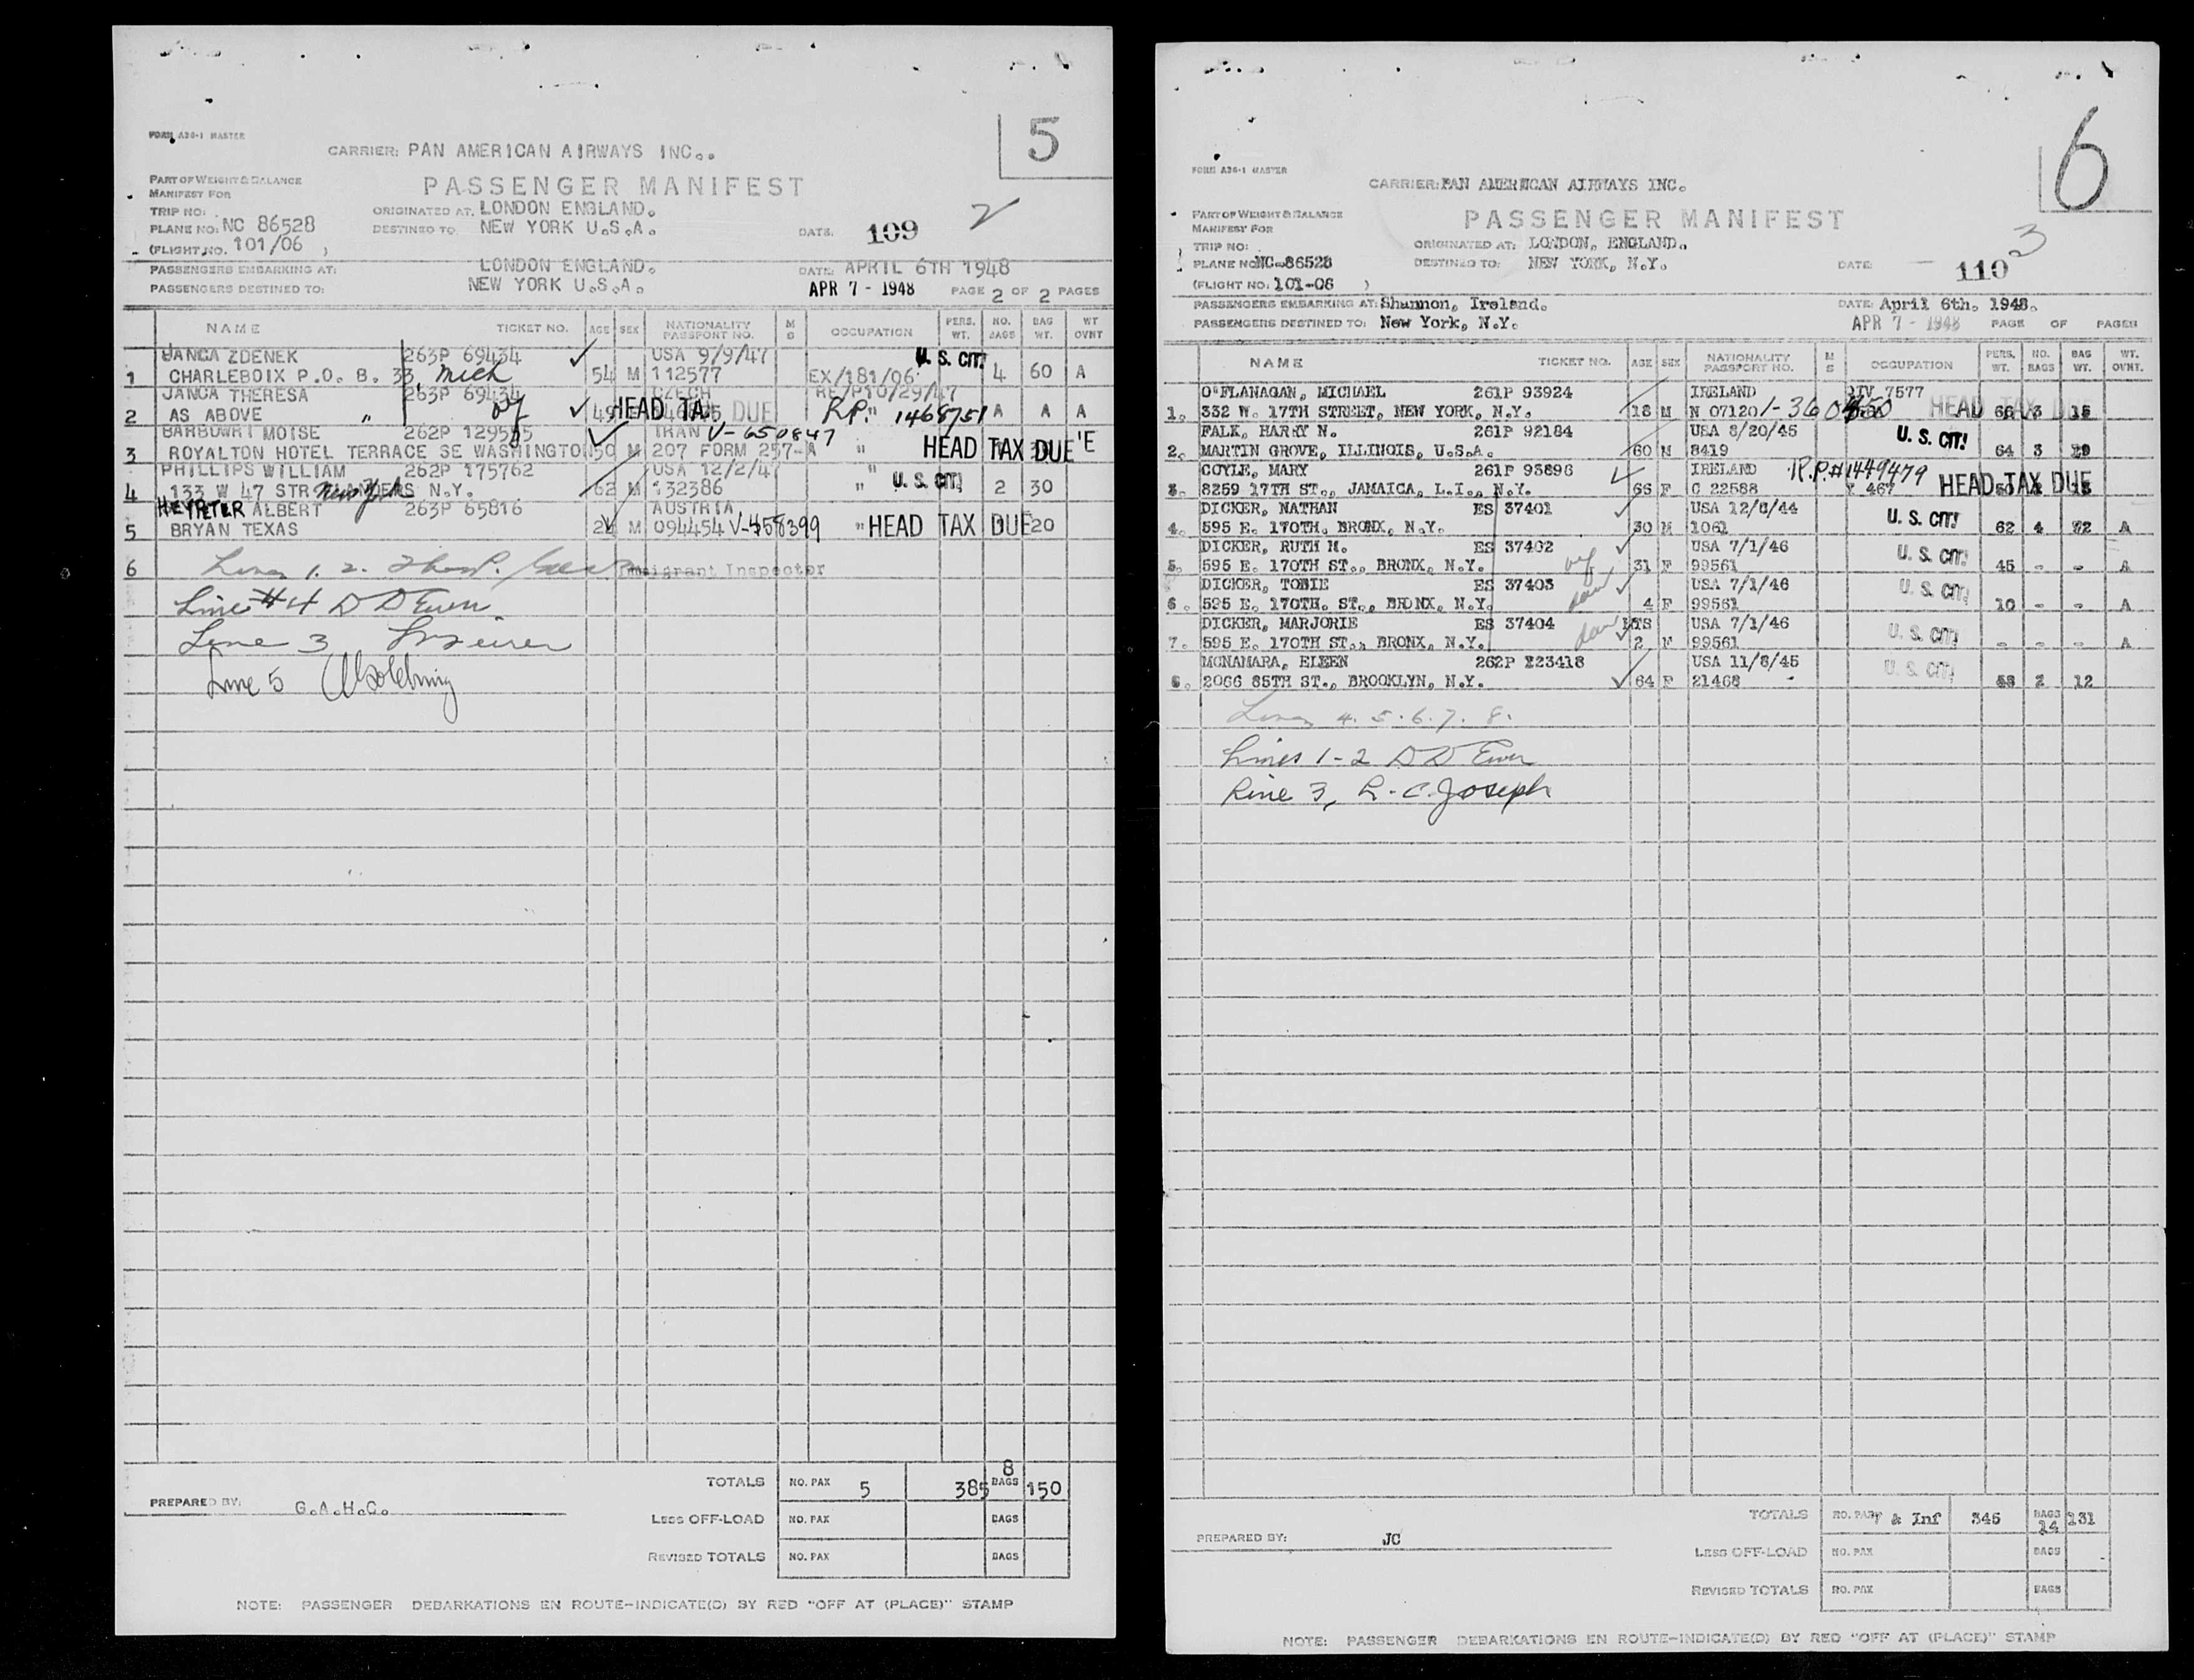 5
FORM A36-1 MASTER
CARRIER: PAN AMERICAN AIRWAYS INC..
PART OF WEIGHT & BALANCE
MANIFEST FOR
PASSENGER MANIFEST
TRIP NO:
ORIGINATED AT. LONDON ENGLAND.
2
PLANE NO: NC 86528
DESTINED TO. NEW YORK U.S.A.
DATE. 109
(FLIGHT NO. 101/06 )
PASSENGERS EMBARKING AT: LONDON ENGLAND. DATE: APRIL 6TH 1948
PASSENGERS DESTINED TO: NEW YORK U.S.A. APR 7 - 1948 PAGE 2 OF 2 PAGES
NAME TICKET NO. AGE SEX NATIONALITY PASSPORT NO. M S OCCUPATION PERS. WT. NO. BAGS BAG WT. WT OVNT
JANCA ZDENEK 263P 69434 USA 9/9/47 U. S. CIT!
1 CHARLEBOIX P.O. B. 33, Mich 54 M 112577 EX/181/06 4 60 A
JANCA THERESA 263P 69434 CZECH RE/P10/29/47
2 AS ABOVE " 49 HEAD TAX DUE R.P. " 1468751 A A A
BARBOWRI MOISE 262P 129515 IRAN V-650847
3 ROYALTON HOTEL TERRACE SE WASHINGTON 50 M 207 FORM 257-A " HEAD TAX DUE
PHILLIPS WILLIAM 262P 175762 USA 12/2/47
4 133 W 47 STR N.Y. 62 M 132386 " U. S. CIT! 2 30
ALBERT 263P 65816 AUSTRIA
5 BRYAN TEXAS 24 M 094454 V-458399 " HEAD TAX DUE 20
6 Lines 1. 2. Immigrant Inspector
Line #4 D D Ewen
Line 3
Line 5
TOTALS NO. PAX 5 385 8 BAGS 150
PREPARED BY: G.A.H.C.
LESS OFF-LOAD NO. PAX BAGS
REVISED TOTALS NO. PAX BAGS
NOTE: PASSENGER DEBARKATIONS EN ROUTE-INDICATE(D) BY RED "OFF AT (PLACE)" STAMP
6
FORM A36-1 MASTER
CARRIER: PAN AMERICAN AIRWAYS INC.
PART OF WEIGHT & BALANCE
MANIFEST FOR
PASSENGER MANIFEST
TRIP NO:
ORIGINATED AT: LONDON, ENGLAND.
3
PLANE NO: NC-86528
DESTINED TO: NEW YORK, N.Y.
DATE 110
(FLIGHT NO: 101-06 )
PASSENGERS EMBARKING AT: Shannon, Ireland. DATE: April 6th, 1948.
PASSENGERS DESTINED TO: New York, N.Y. APR 7 - 1948 PAGE OF PAGES
NAME TICKET NO. AGE SEX NATIONALITY PASSPORT NO. M S OCCUPATION PERS. WT. NO. BAGS BAG WT. WT. OVNT.
O'FLANAGAN, MICHAEL 261P 93924 IRELAND QIV 7577
1. 332 W. 17TH STREET, NEW YORK, N.Y. 18 M N 07120 HEAD TAX DUE 66 3 15
FALK, HARRY N. 261P 92184 USA 8/20/45
2. MARTIN GROVE, ILLINOIS, U.S.A. 60 M 8419 U. S. CIT! 64 3 29
COYLE, MARY 261P 93896 IRELAND R.P.# 1449479
3. 8259 17TH ST., JAMAICA, L.I., N.Y. 66 F C 22588 467 HEAD TAX DUE
DICKER, NATHAN ES 37401 USA 12/8/44
4. 595 E. 170TH, BRONX, N.Y. 30 M 1061 U. S. CIT! 62 4 A
DICKER, RUTH M. ES 37402 USA 7/1/46
5. 595 E. 170TH ST., BRONX, N.Y. wf 31 F 99561 U. S. CIT! 45 - - A
DICKER, TOBIE ES 37403 USA 7/1/46
6. 595 E. 170TH. ST., BRONX, N.Y. dau 4 F 99561 U. S. CIT! 10 - - A
DICKER, MARJORIE ES 37404 MTS USA 7/1/46
7. 595 E. 170TH ST., BRONX, N.Y. dau 2 F 99561 U. S. CIT! - - - A
MCNAMARA, ELEEN 262P 223418 USA 11/8/45
8. 2066 85TH ST., BROOKLYN, N.Y. 64 F 21468 U. S. CIT! 2 12
Lines 4. 5. 6. 7. 8.
Lines 1-2 D D Ewen
Line 3, R. C. Joseph
TOTALS NO. PAX 7 & Inf 345 BAGS 14 131
PREPARED BY: JC
LESS OFF-LOAD NO. PAX BAGS
REVISED TOTALS NO. PAX BAGS
NOTE: PASSENGER DEBARKATIONS EN ROUTE-INDICATE(D) BY RED "OFF AT (PLACE)" STAMP